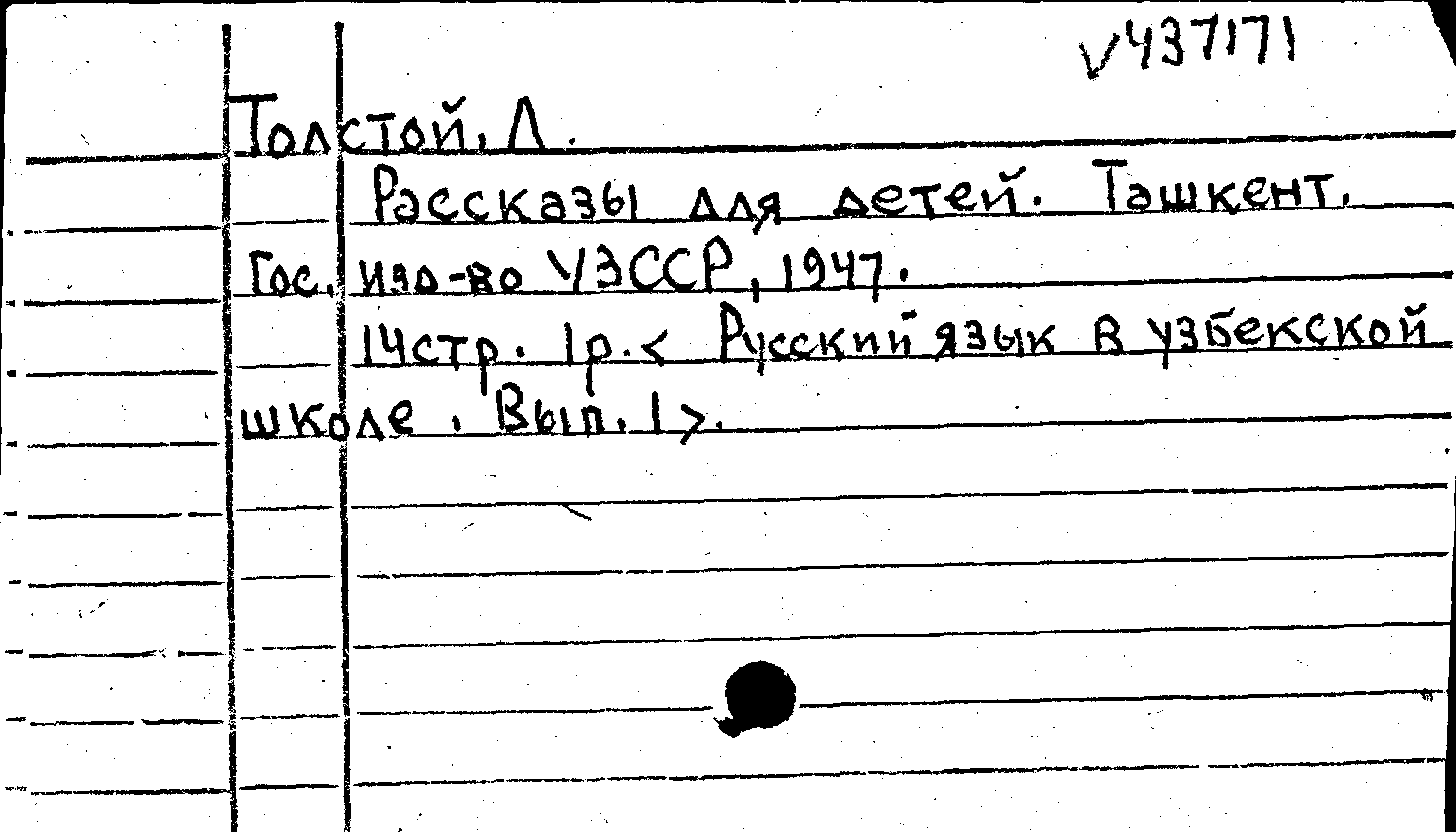 √437171
Толстой, Л.
Рассказы для детей. Ташкент.
Гос. изд-во УЗССР, 1947.
14стр. 1р.< Русский язык в узбекской
школе. Вып. 1>.